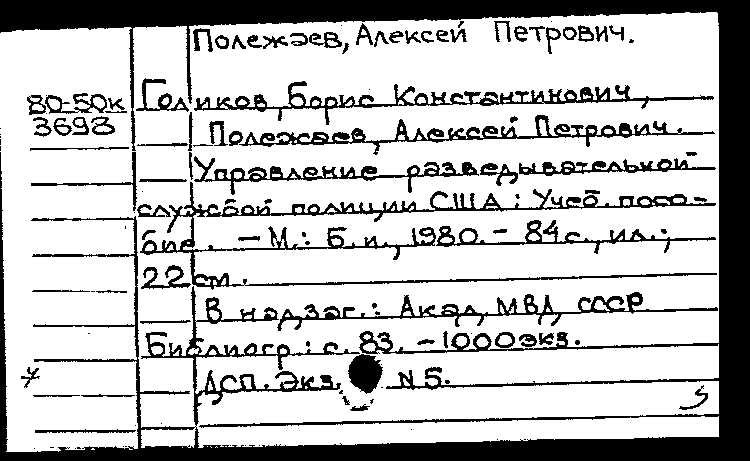 Полежаев, Алексей Петрович.
80-50к Голиков, Борис Константинович,
3693 Полежаев, Алексей Петрович.
Управление разведывательной
службой полиции США: Учеб. посо-
бие. — М.: Б. и., 1980. — 84 с., ил.;
22 см.
В надзаг.: Акад. МВД СССР
Библиогр.: с. 83. — 1000 экз.
ДСП. Экз. N 5.